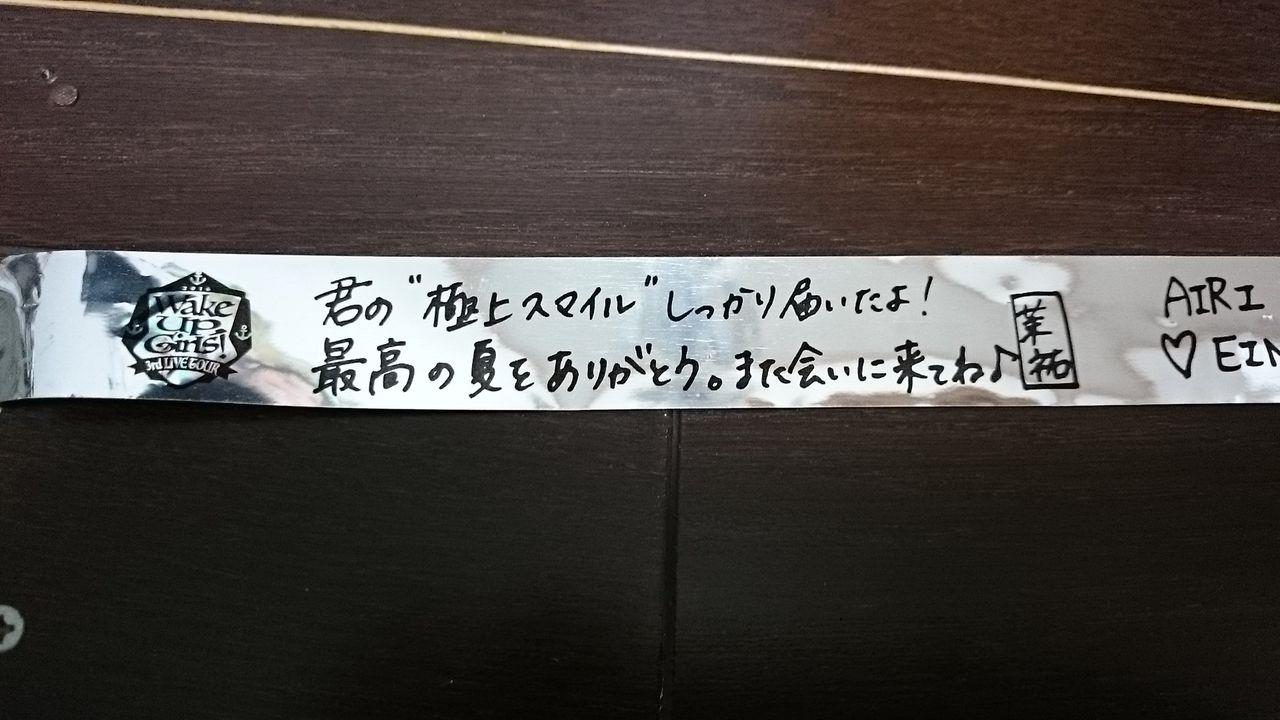 2016
Wake
Up
Girls!
3rd LIVE TOUR
君の"極上スマイル"しっかり届いたよ!
最高の夏をありがとう。また会いに来てね♪
茉祐
AIRI
♡ EIN